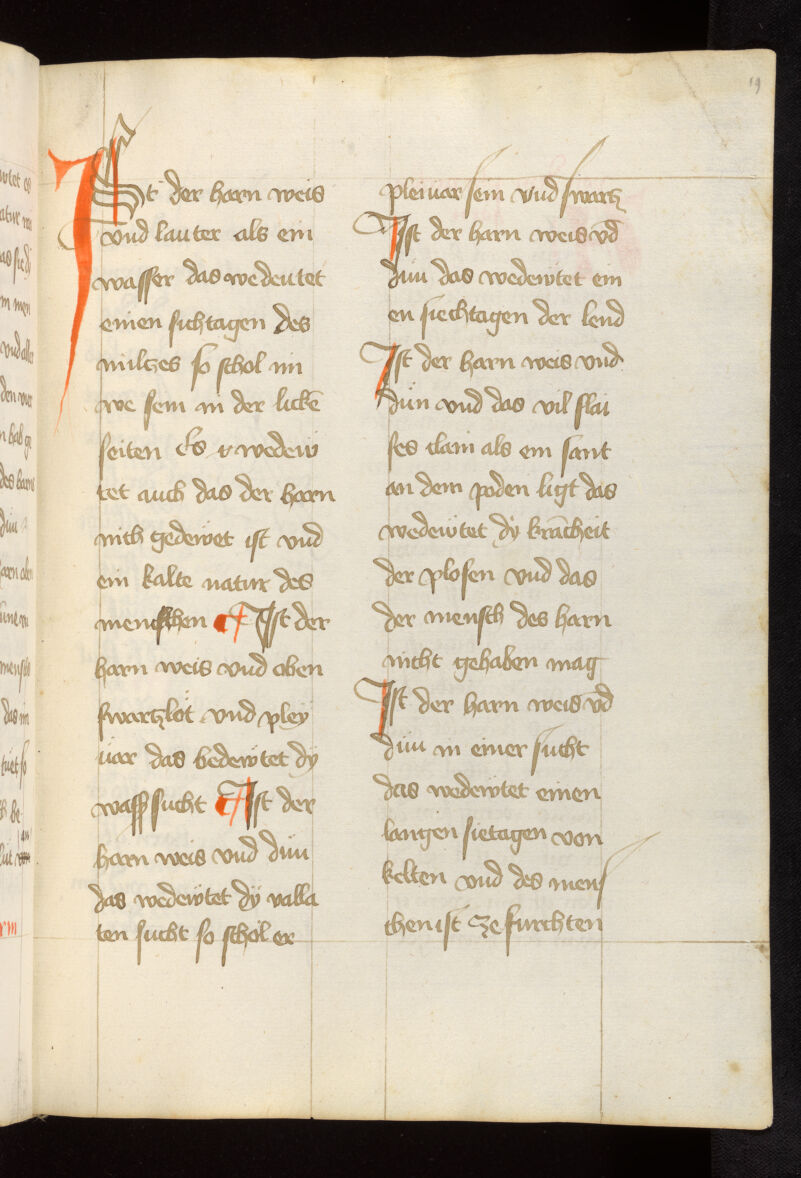 19
ISt der harn weis
vnd lauter als ein
wasser das wedeutet
einen sichtagen des
miltzes so schol im
we sein in der licke͂
seiten Es wedew
tet auch das der harn
nith gedewet ist vnd
ein kalte natur des
menschen Ist der
harn weis vnd oben
swartzlot vnd pley
uar das bedewtet dy
wasssucht Ist der
harn weis vnd dun
das wedewtet dy valla
ten sucht so schol er
pleiuar sein vnd swartz
Ist der harn weis vd̄
dun das wedewtet ein
en siechtagen der lend
Ist der harn weis vnd
dun vnd das vil flai
ses clain als ein sant
an dem poden ligt das
wedewtet dy kra͂cheit
der plosen vnd das
der mensch des harn
nicht gehaben mag
Ist der harn weis vd̄
dun in einer sucht
das wedewtet einen
langen sietagen von
kelten vnd des mens
chen ist ze furchten